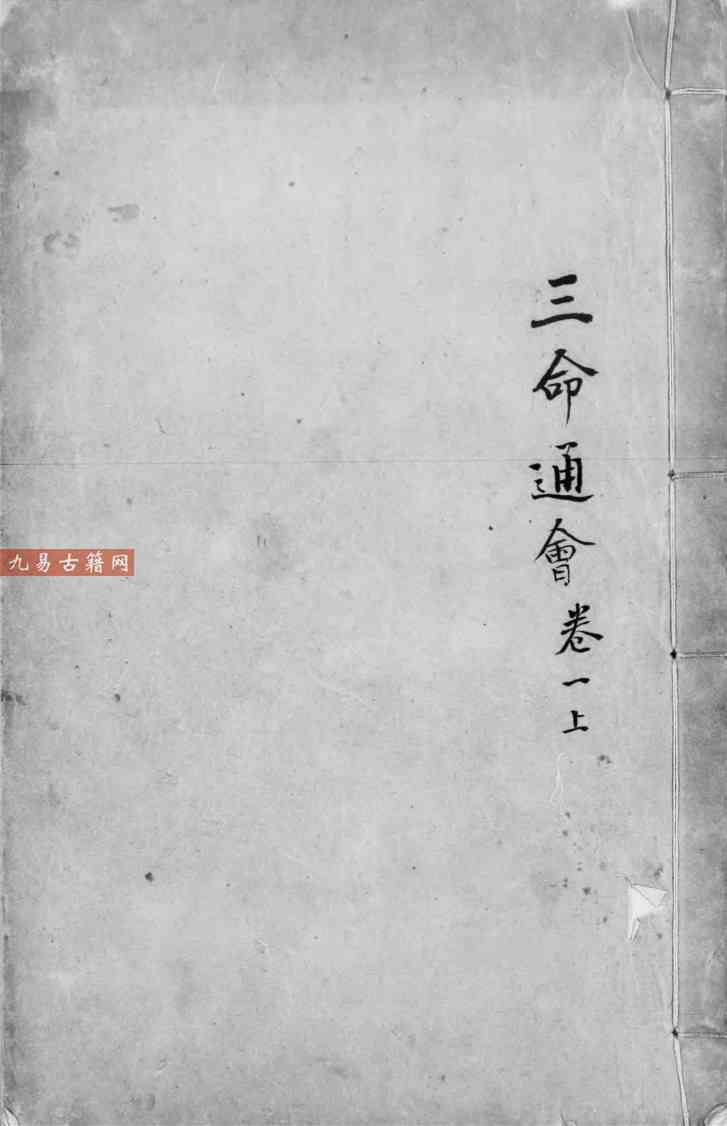 三命通會卷一上
九易古籍网